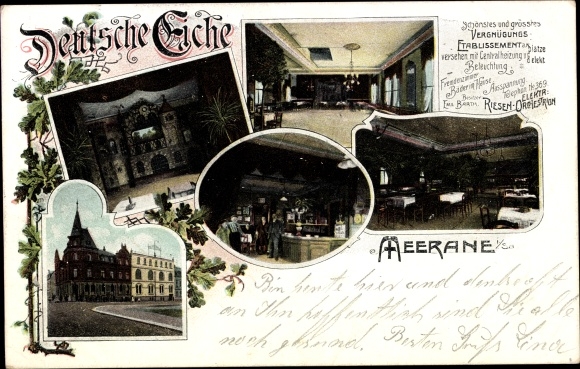 Deutsche Eiche
Schönstes und grösstes
Vergnügungs-
Etablissement am Platze
versehen mit Centralheizung u. elekt.
Beleuchtung
Fremdenzimmer
Bäder im Hause
Ausspannung
Telephon № 369.
Besitzer
Emil Barth
Elektr.
Riesen-Orchestrion
Meerane i/S.
Bin heute hier und denke oft
an Ihn hoffentlich sind Sie alle
noch gesund. Besten Gruß